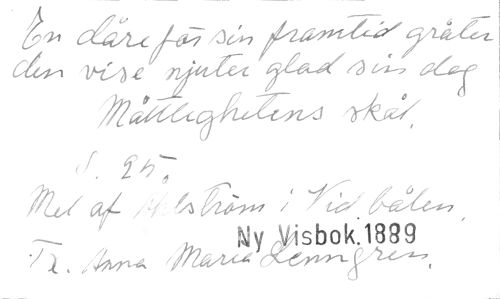 En dåre för sin framtid gråter
den vise njuter glad sin dag
Måttlighetens skål.
S. 25.
Mel af Åhlström i Vid bålen.
Ny Visbok. 1889
Tx. Anna Maria Lenngren.